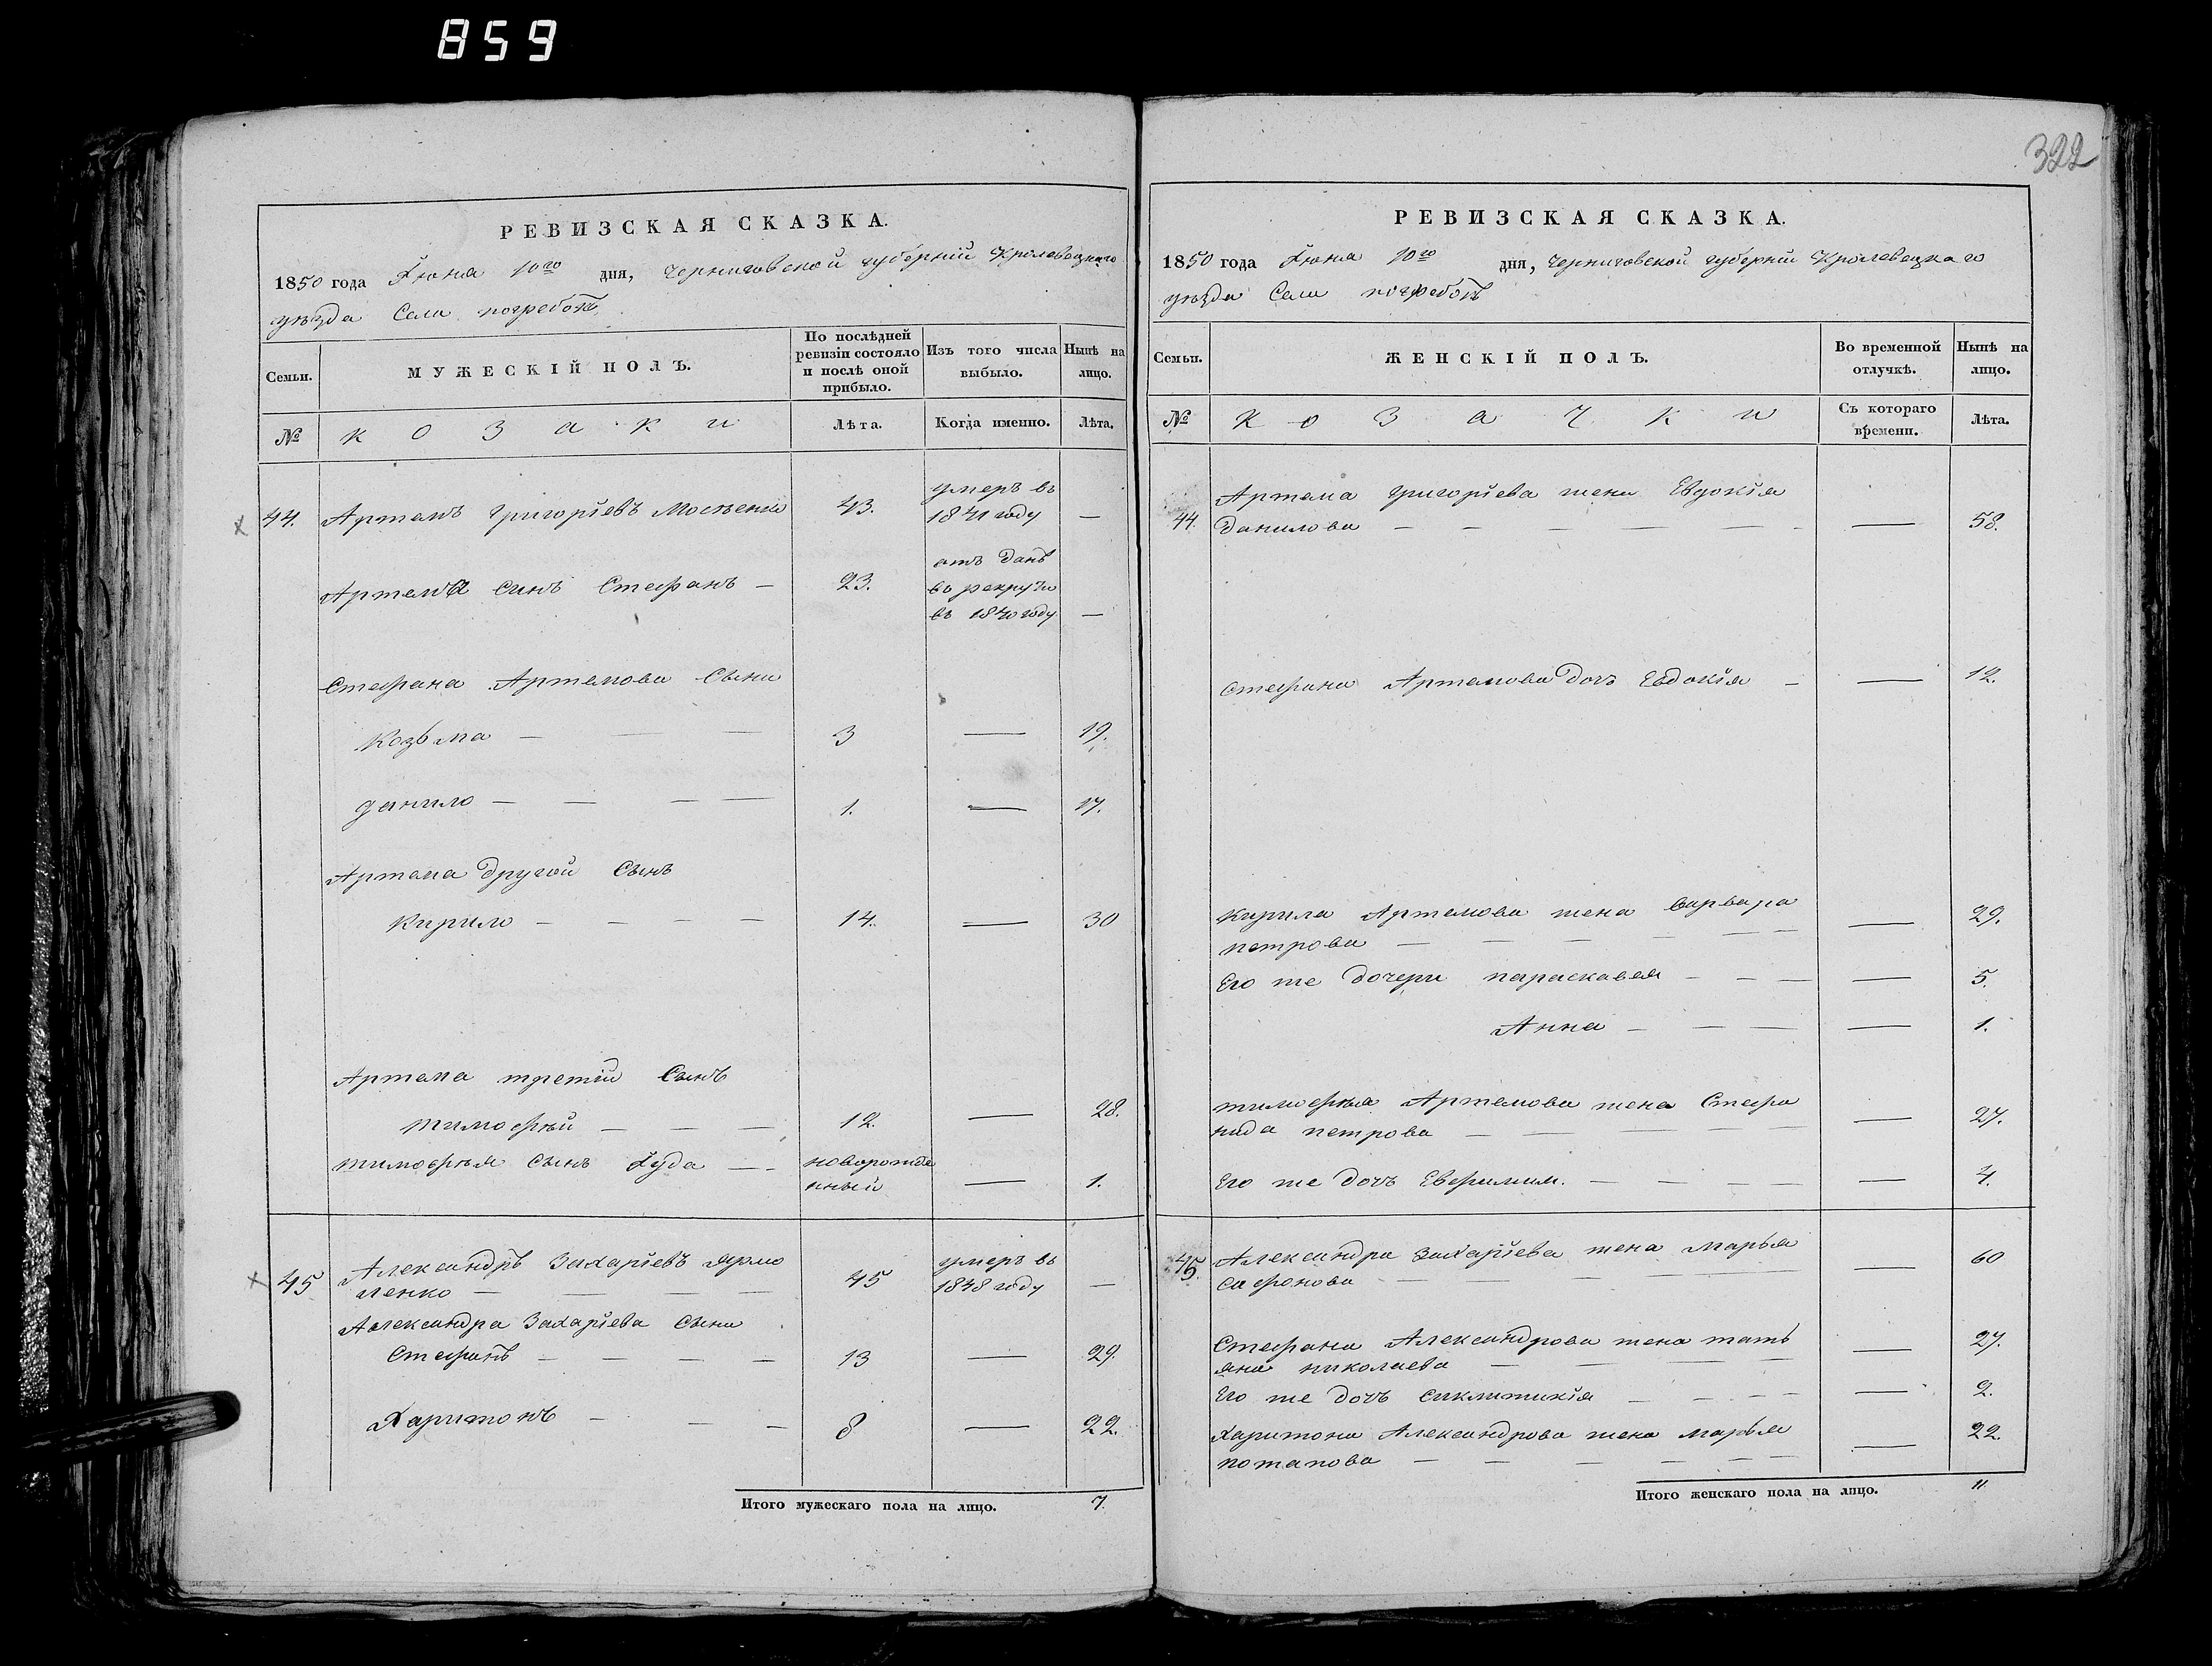 859
322
РЕВИЗСКАЯ СКАЗКА.
1850 года Іюня 10го дня, Черниговской губерніи Кролевецкаго
уѣзда Села погребокъ
Семьи.
МУЖЕСКІЙ ПОЛЪ.
По послѣдней ревизіи состояло и послѣ оной прибыло.
Изъ того числа выбыло.
Нынѣ на лицо.
№
козаки
Лѣта.
Когда именно.
Лѣта.
44. Артемъ Григорьевъ 43. умеръ въ 1841 году —
Артема синъ Стефанъ — 23. отъ данъ в рекруты въ 1840 году —
Стефана Артемова Сыни
Козьма — 3 — 19.
Данило — 1. — 17.
Артема Другой Сынъ
Кирило — 14. — 30
Артема третій Сынъ
Тимофѣй — 12. — 28.
Тимофѣя Сынъ Іуда — новорожденный — 1.
45 Александръ Захарьевъ Ярмоленко — 45 умеръ въ 1848 году —
Александра Захарьева Сыни
Стефанъ — 13 — 29.
Харитонъ — 8 — 22.
Итого мужескаго пола на лицо. 7.
РЕВИЗСКАЯ СКАЗКА.
1850 года Іюня 10го дня, Черниговской губерніи Кролевецкаго
уѣзда Села погребокъ
Семьи.
ЖЕНСКІЙ ПОЛЪ.
Во временной отлучкѣ.
Нынѣ на лицо.
№
козачки
Съ котораго времени.
Лѣта.
44. Артема Григорьева жена Евдокія
Данилова — — 58.
Стефана Артемова Дочъ Евдокія — — 12.
Кирила Артемова жена Варвара
петрова — — 29.
Его же Дочери параскавея — — 5.
Анна — — 1.
Тимофѣя Артемова жена Стефа
нида петрова — — 27.
Его же Дочъ — — 4.
45. Александра Захарьева жена Марья
Сафонова — — 60
Стефана Александрова жена тать
яна николаева — — 27.
Его же Дочъ Сиклитикія — — 2.
Харитона Александрова жена Марья
потапова — — 22.
Итого женскаго пола на лицо. 11